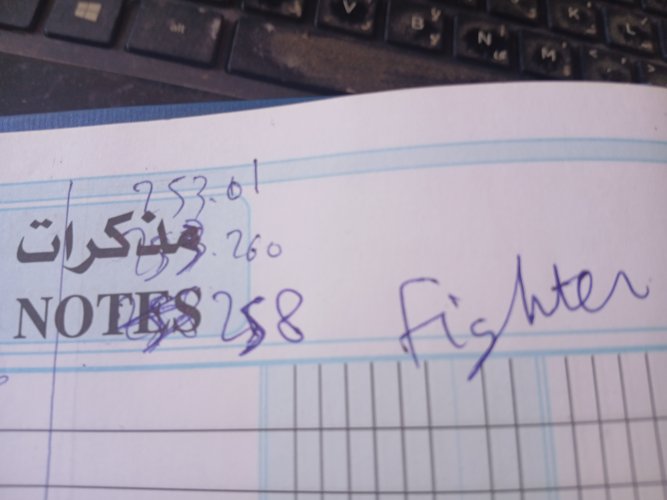 V B N M K L
253.01
مذكرات
253.260
NOTES 258
Fighter